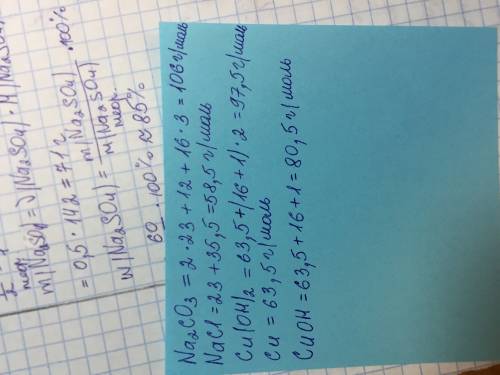 m(Na₂SO₄) = ν(Na₂SO₄) · M(Na₂SO₄)
теор.
= 0,5 · 142 = 71 г
w(Na₂SO₄) = m(Na₂SO₄) / m(Na₂SO₄) · 100%
теор.
60 · 100% ≈ 85%
Na₂CO₃ = 2 · 23 + 12 + 16 · 3 = 106 г/моль
NaCl = 23 + 35,5 = 58,5 г/моль
Cu(OH)₂ = 63,5 + (16 + 1) · 2 = 97,5 г/моль
Cu = 63,5 г/моль
CuOH = 63,5 + 16 + 1 = 80,5 г/моль